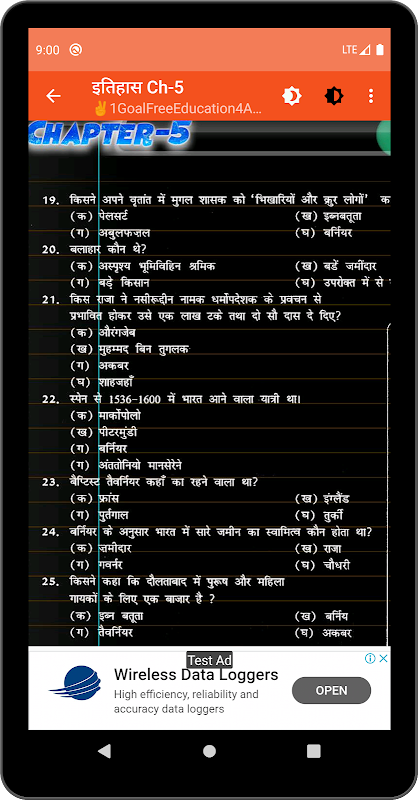 9:00 LTE
इतिहास Ch-5
✌1GoalFreeEducation4A...
CHAPTER-5
19. किसने अपने वृतांत में मुगल शासक को 'भिखारियों और क्रूर लोगों' क
(क) पेलसर्ट (ख) इब्नबतूता
(ग) अबुलफजल (घ) बर्नियर
20. बलाहार कौन थे?
(क) अस्पृश्य भूमिविहिन श्रमिक (ख) बडें जमींदार
(ग) बड़े किसान (घ) उपरोक्त में से
21. किस राजा ने नसीरूद्दीन नामक धर्मोपदेशक के प्रवचन से
प्रभावित होकर उसे एक लाख टके तथा दो सौ दास दे दिए?
(क) औरंगजेब
(ख) मुहम्मद बिन तुगलक
(ग) अकबर
(घ) शाहजहाँ
22. स्पेन से 1536-1600 में भारत आने वाला यात्री था।
(क) मार्कोपोलो
(ख) पीटरमुंडी
(ग) बर्नियर
(घ) अंततोनियो मानसेरेने
23. बैप्टिस्ट तैवर्नियर कहाँ का रहने वाला था?
(क) फ्रांस (ख) इंग्लैंड
(ग) पुर्तगाल (घ) तुर्की
24. बर्नियर के अनुसार भारत में सारे जमीन का स्वामित्व कौन होता था?
(क) ज़मीदार (ख) राजा
(ग) गवर्नर (घ) चौधरी
25. किसने कहा कि दौलताबाद में पुरूष और महिला
गायकों के लिए एक बाजार है ?
(क) इब्न बतूता (ख) बर्निय
(ग) तैवर्नियर (घ) अकबर
Test Ad
Wireless Data Loggers
High efficiency, reliability and
accuracy data loggers
OPEN